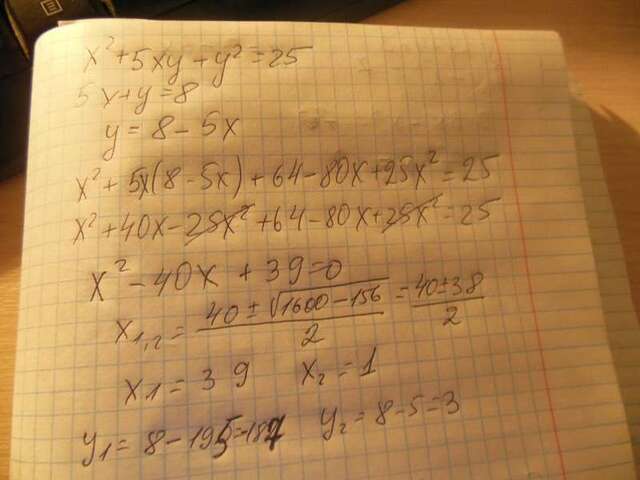 x² + 5xy + y² = 25
5x + y = 8
y = 8 - 5x
x² + 5x(8 - 5x) + 64 - 80x + 25x² = 25
x² + 40x - 25x² + 64 - 80x + 25x² = 25
x² - 40x + 39 = 0
x1,2 = (40 ± √(1600 - 156))/2 = (40 ± 38)/2
x1 = 39 x2 = 1
y1 = 8 - 195 = -187 y2 = 8 - 5 = 3